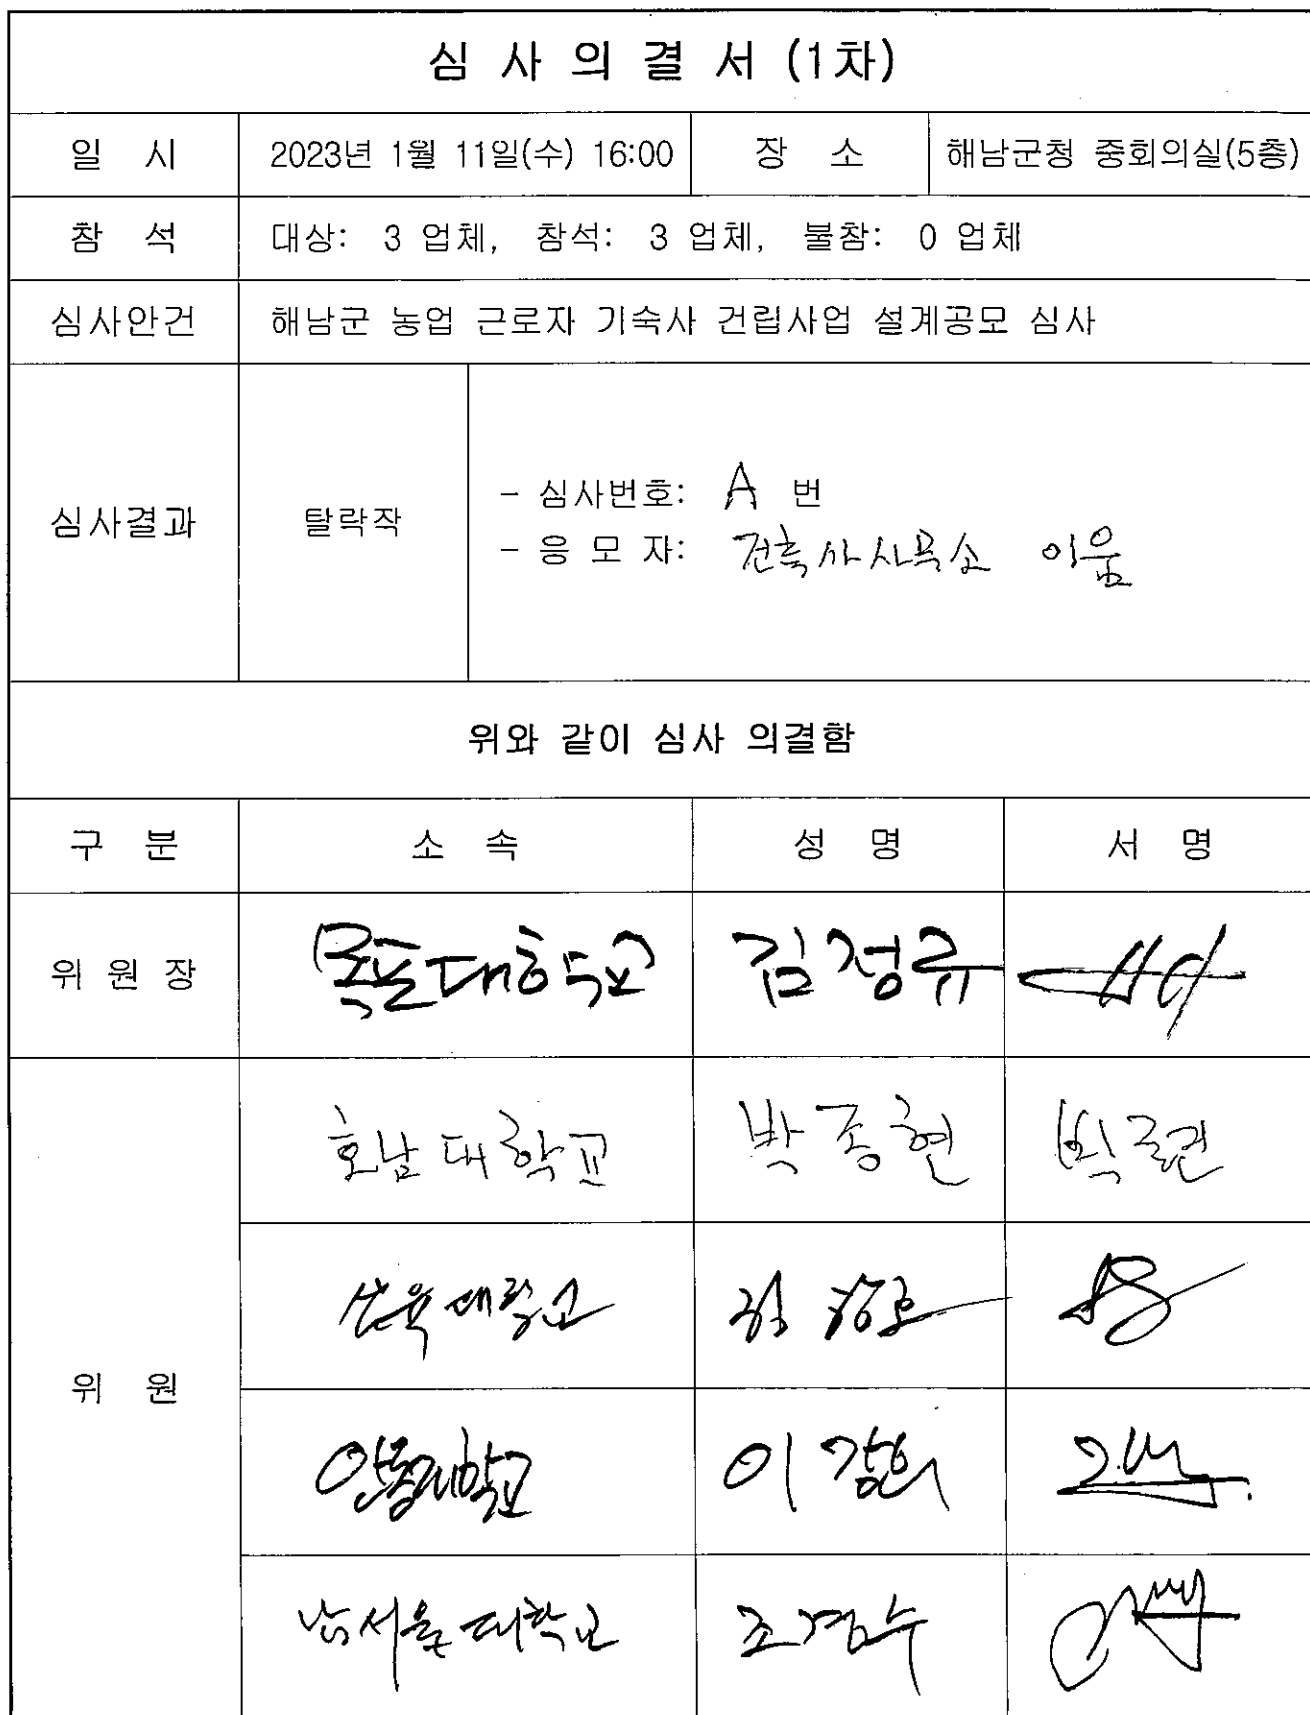 심 사 의 결 서 (1차)
일 시 2023년 1월 11일(수) 16:00 장 소 해남군청 중회의실(5층)
참 석 대상: 3 업체, 참석: 3 업체, 불참: 0 업체
심사안건 해남군 농업 근로자 기숙사 건립사업 설계공모 심사
심사결과 탈락작
- 심사번호: A 번
- 응 모 자: 건축사사무소 이움
위와 같이 심사 의결함
구 분 소 속 성 명 서 명
위 원 장 목포대학교 김정규
위 원
호남대학교 박종현
삼육대학교 정
안동대학교 이
남서울대학교 조경수